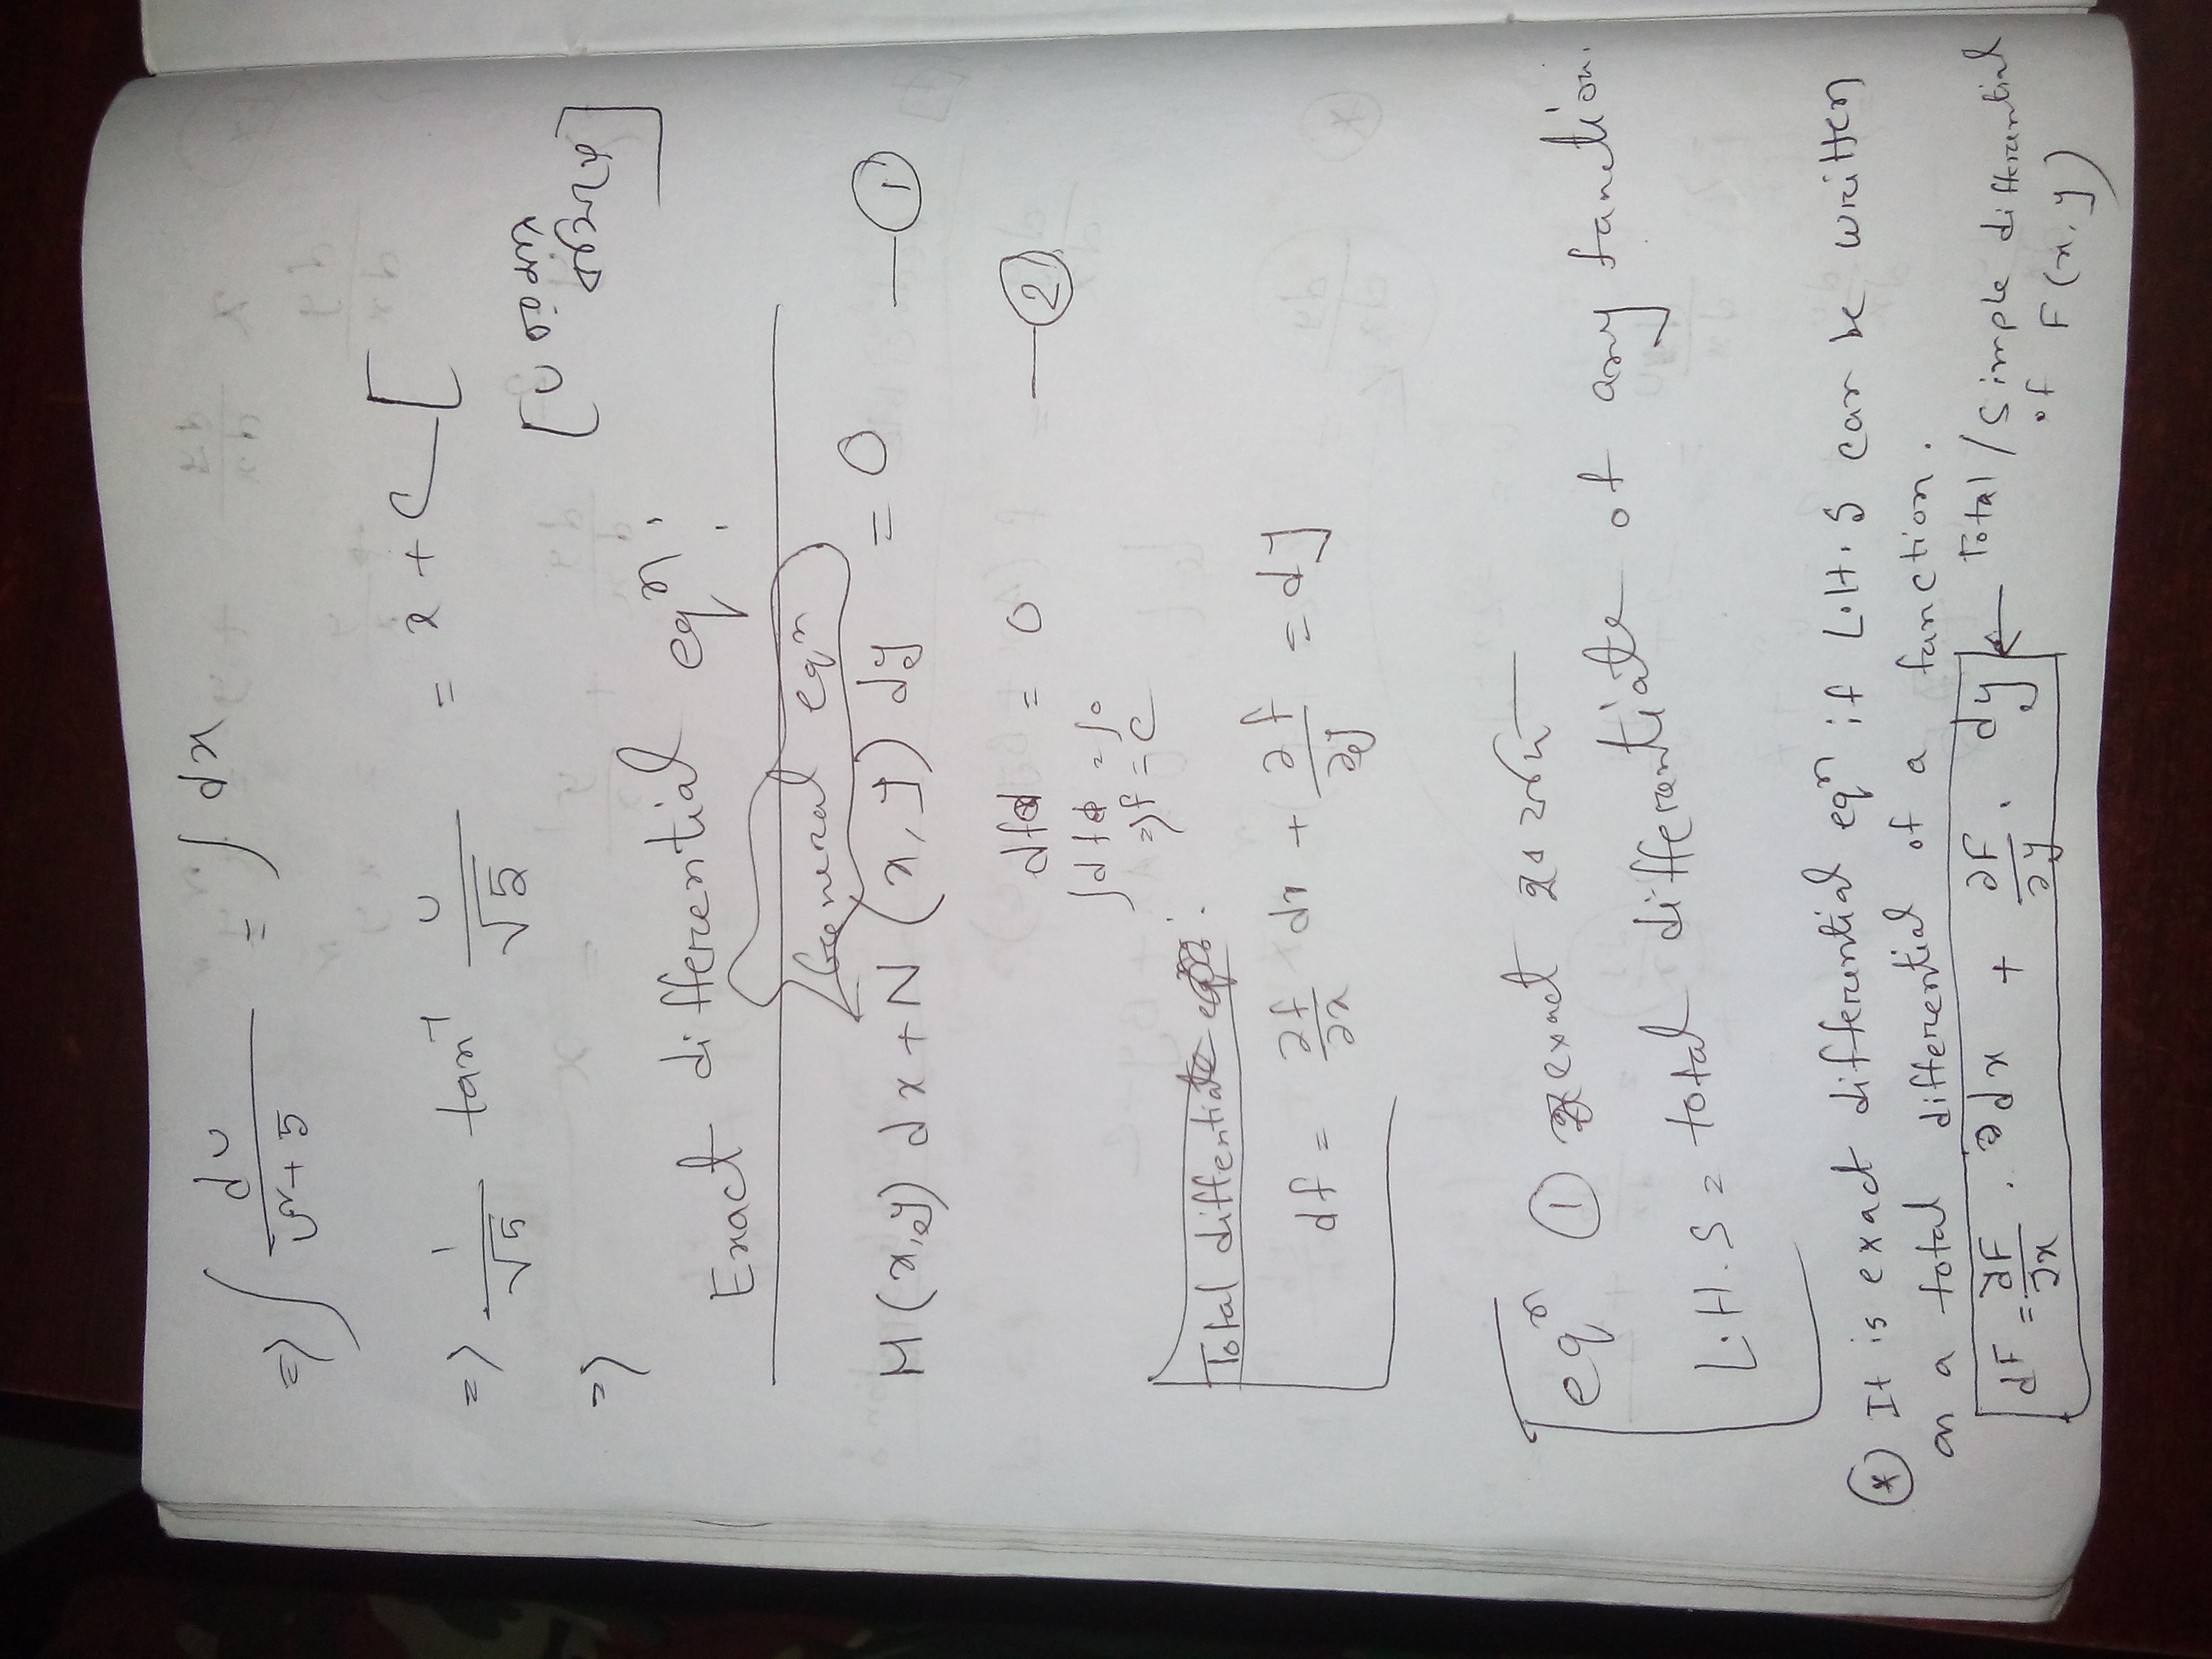 => ∫ du/(υ²+5) = ∫ dx
=> 1/√5 tan⁻¹ υ/√5 = x + c [
=> [υ এর মান
বসিয়ে]
Exact differential eqⁿ:
General eqⁿ
M(x,y) dx + N (x,y) dy = 0 — ①
df = 0 — ②
∫df = ∫0
=> f = c
Total differentiate :
df = ∂f/∂x dx + ∂f/∂y = dy
eqⁿ ① exact হবে যদি
L.H.S = total differentiate of any function.
(*) It is exact differential eqⁿ if L.H.S can be written
as a total differential of a function.
dF = ∂F/∂x . ∂dx + ∂F/∂y . dy ← Total / Simple differential
of F(x,y)